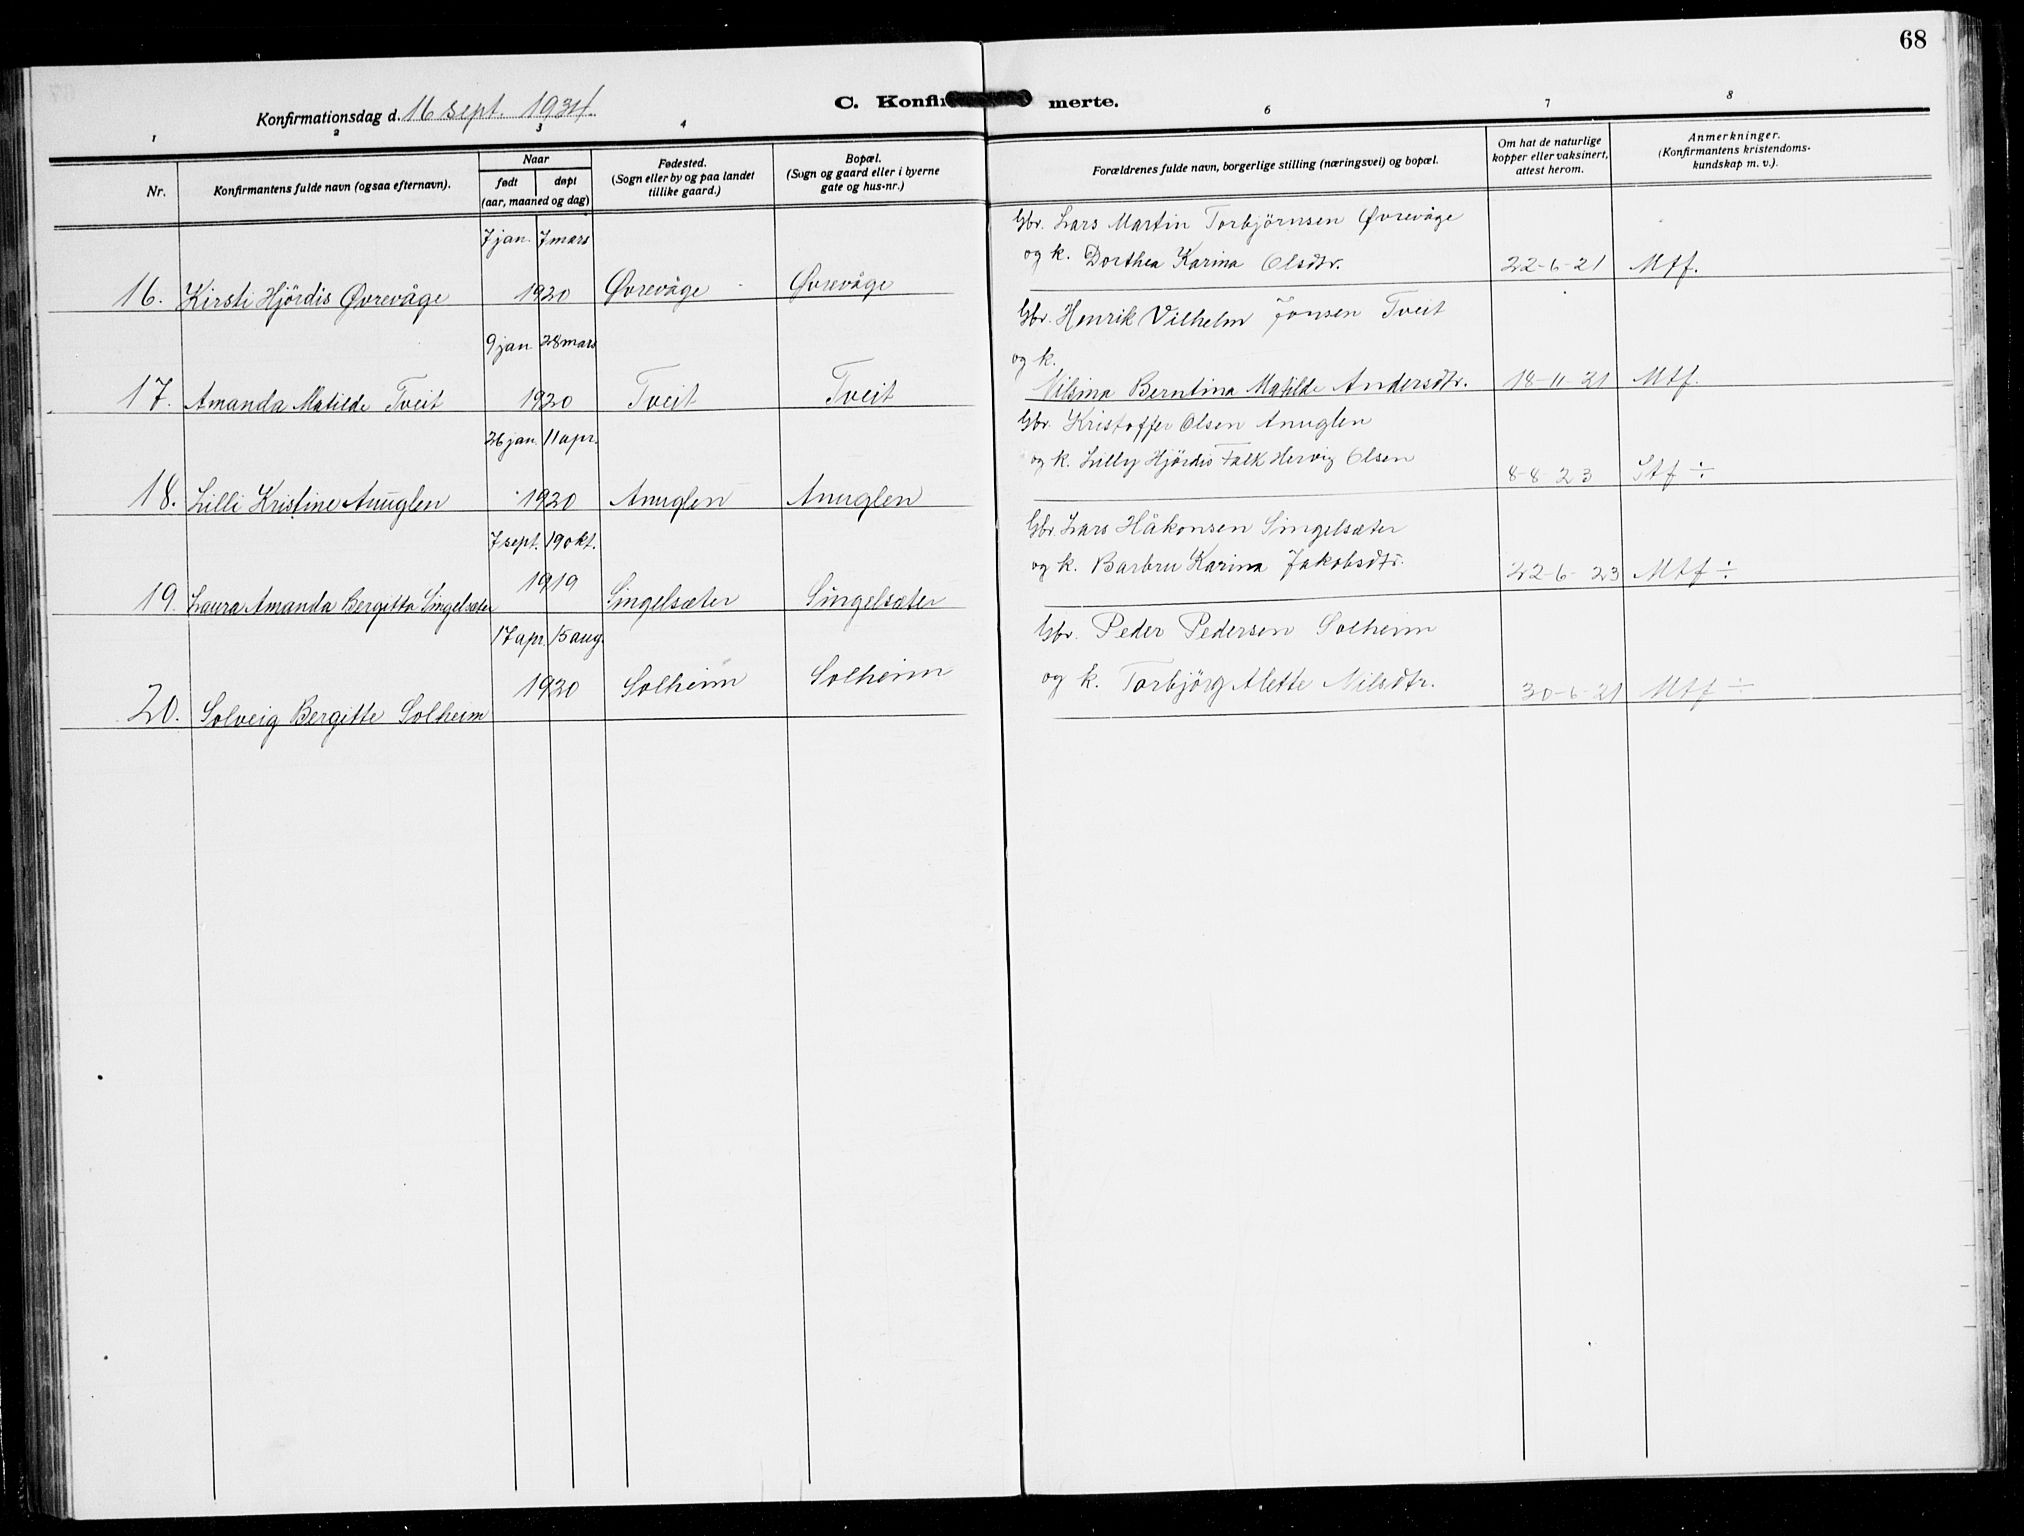 68
Konfirmationsdag d. 16 sept. 1934.
C. Konfir merte.
1 2 3 4 6 7 8
Nr.
Konfirmantens fulde navn (ogsaa efternavn).
Naar
født
døpt
(aar, maaned og dag)
Fødested.
(Sogn eller by og paa landet
tillike gaard.)
Bopæl.
(Sogn og gaard eller i byerne
gate og hus-nr.)
Forældrenes fulde navn, borgerlige stilling (næringsvei) og bopæl.
Om hat de naturlige
kopper eller vaksinert,
attest herom.
Anmerkninger.
(Konfirmantens kristendoms-
kundskap m. v.).
7 jan. 7 mars
Gbr. Lars Martin Torbjörnsen Øvrevåge
og k. Dorthea Karina Olsdtr. 22-6-21 Mtf.
16. Kirsti Hjördis Øvrevåge 1920 Øvrevåge Øvrevåge
9 jan. 28 mars
Gbr. Henrik Vilhelm Jonsen Tveit
og k.
Nilsina Berntina Matilde Andersdtr. 18-11-21 Mtf.
17. Amanda Matilde Tveit 1920 Tveit Tveit
26 jan. 11 apr.
Gbr. Kristoffer Olsen Anuglen
og k. Lilly Hjördis Falk Hervig Olsen 8-8-23 Mtf ÷
18. Lilli Kristine Anuglen 1920 Anuglen Anuglen
7 sept. 19 okt.
Gbr. Lars Håkonsen Singelsæter
og k. Barbru Karina Jakobsdtr. 22-6-23 Mtf ÷
19. Laura Amanda Bergitta Singelsæter 1919 Singelsæter Singelsæter
17 apr. 15 aug.
Gbr. Peder Pedersen Solheim
og k. Torbjörg Alette Nilsdtr. 30-6-21 Mtf ÷
20. Solveig Bergitte Solheim 1920 Solheim Solheim